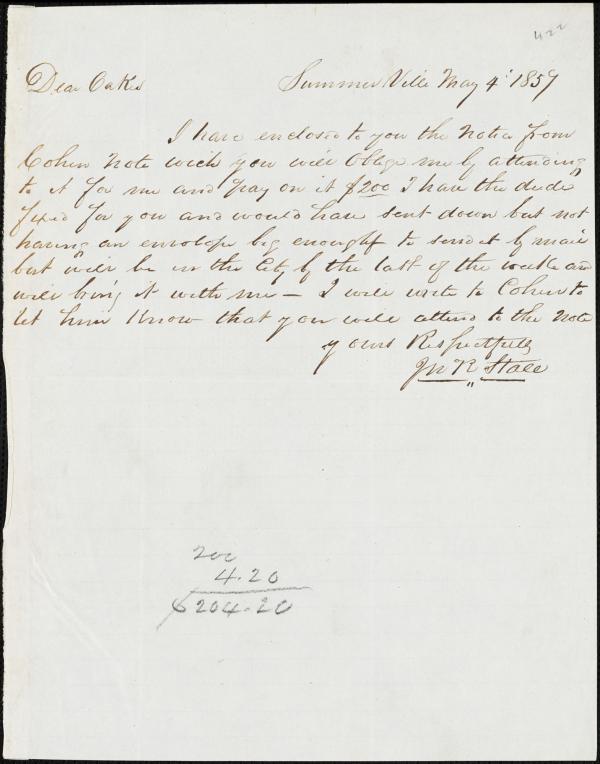 422
Dear Oakes Summer Ville May 4th 1857
I have enclosed to you the Notice from
Cohen Note wich you will Oblige me by attending
to it for me and pay on it $200 I have the dede
fixed for you and would have sent down but not
having an envelope big enought to send it by mail
but will be in the City by the last of the week and
will bring it with me — I will write to Cohen to
let him Know that you will attend to the Note
yours Respectfully
Jn R Stall
200
4.20
$204.20